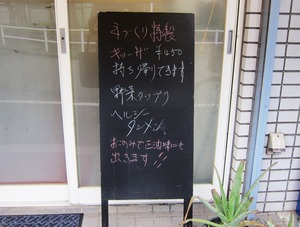 手づくり特製
ギョーザ ¥450
持ち帰りできます
野菜タップリ
ヘルシー
タンメン
お好みで正油味にも
出きます!!